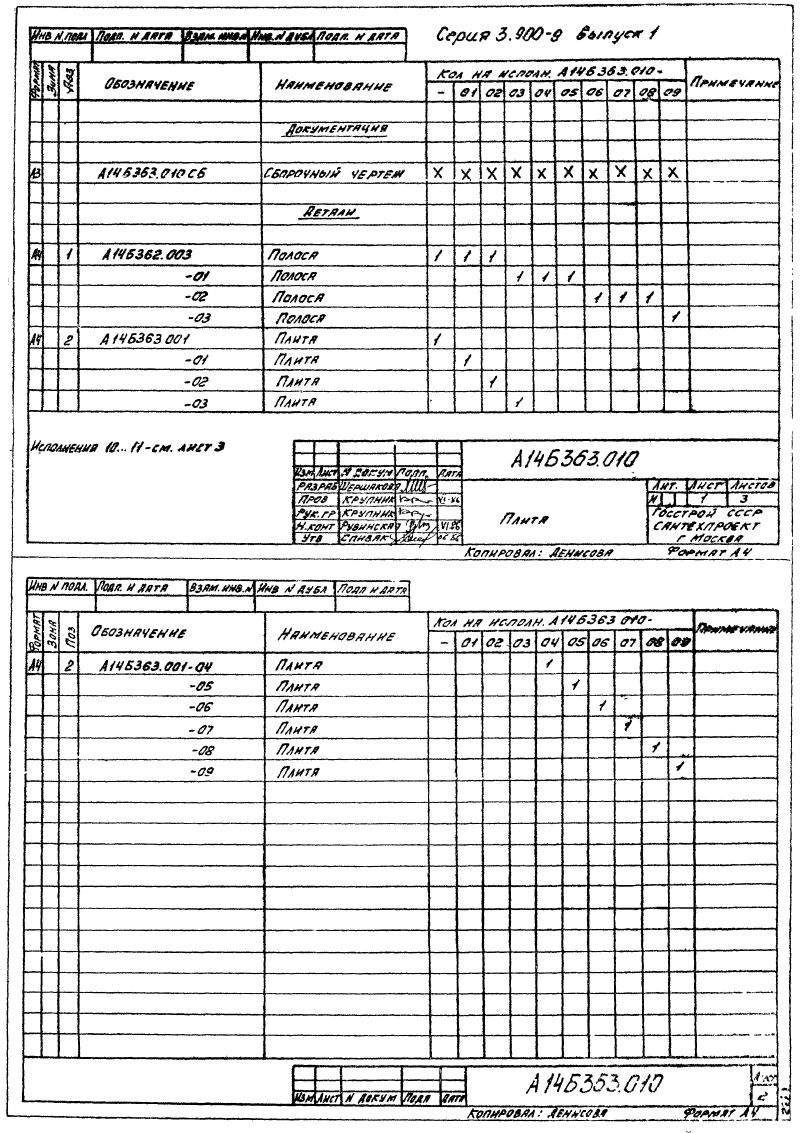 Серия 3.900-9 Выпуск 1
Инв. N подл. Подп. и дата Взам. инв. N Инв. N дубл Подп. и дата
Формат Зона Поз Обозначение Наименование Кол на исполн. А14Б363.010- Примечание
- 01 02 03 04 05 06 07 08 09
Документация
А3 А14Б363.010 СБ Сборочный чертеж X X X X X X X X X X
Детали
А4 1 А14Б362.003 Полоса 1 1 1
-01 Полоса 1 1 1
-02 Полоса 1 1 1
-03 Полоса 1
А4 2 А14Б363.001 Плита 1
-01 Плита 1
-02 Плита 1
-03 Плита 1
Исполнения 10... 17-см. лист 3
А14Б363.010
Изм. Лист N докум Подп. Дата
Разраб Шершакова
Пров Крупник VI-86
Рук. гр Крупник
Н. конт Рувинская VI.86
Утв Спивак
Плита
Лит. Лист Листов
И 1 3
Госстрой СССР
Сантехпроект
г Москва
Копировал: Денисова Формат А4
Инв N подл. Подп. и дата Взам. инв. N Инв N дубл Подп и дата
Формат Зона Поз Обозначение Наименование Кол на исполн. А14Б363 010- Примечание
- 01 02 03 04 05 06 07 08 09
А4 2 А14Б363.001-04 Плита 1
-05 Плита 1
-06 Плита 1
-07 Плита 1
-08 Плита 1
-09 Плита 1
А14Б353.010
Лист
2
Изм Лист N докум Подп Дата
Копировал: Денисова Формат А4